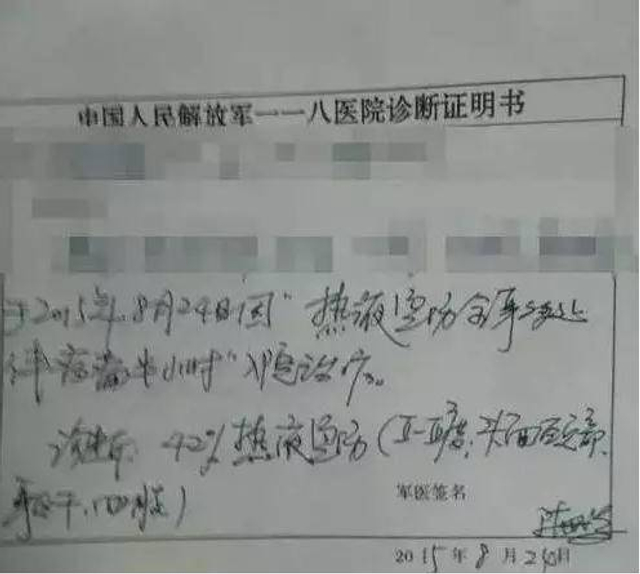 中国人民解放军一一八医院诊断证明书
于2015年8月24日因"热液烫伤全身多处
伴疼痛半小时"入院治疗。
诊断：42%热液烫伤（II-III度，头面颈
躯干、四肢）
军医签名
2015年8月24日